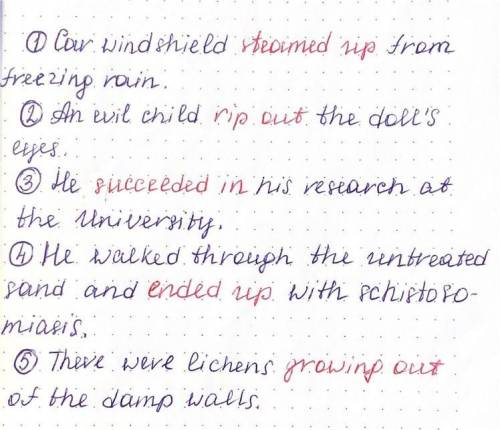 ① Car windshield steamed up from
freezing rain.
② An evil child rip out the doll's
eyes.
③ He succeeded in his research at
the University.
④ He walked through the untreated
sand and ended up with schistoso-
miasis.
⑤ There were lichens growing out
of the damp walls.